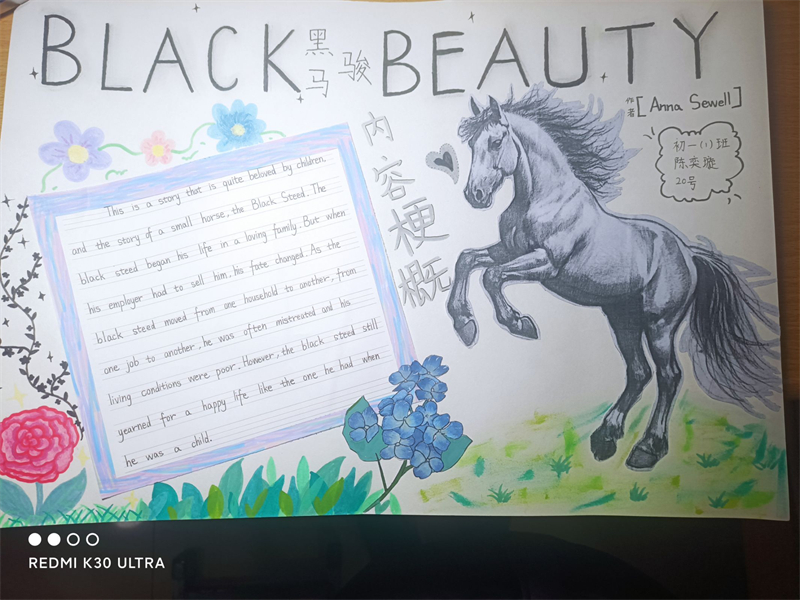 BLACK 黑马骏 BEAUTY
作者[Anna Sewell]
初一(1)班
陈奕璇
20号
内容梗概
This is a story that is quite beloved by children.
and the story of a small horse, the Black Steed. The
black steed began his life in a loving family. But when
his employer had to sell him, his fate changed. As the
black steed moved from one household to another, from
one job to another, he was often mistreated and his
living conditions were poor. However, the black steed still
yearned for a happy life like the one he had when
he was a child.
REDMI K30 ULTRA